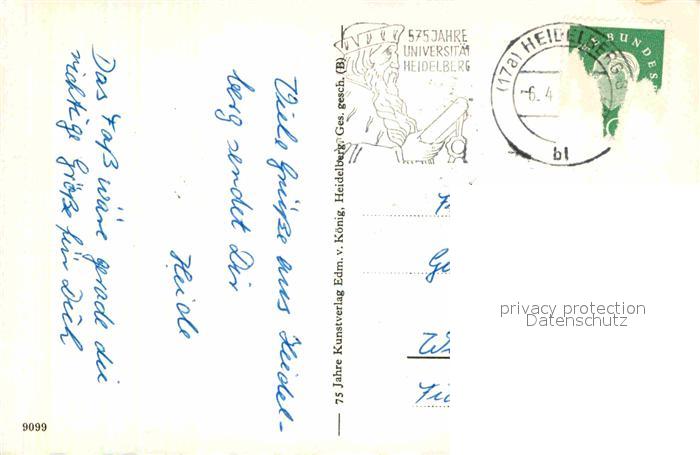 Viele Grüße aus Heidel-
berg sendet Dir
Heide
Das Faß wäre gerade die
richtige Größe für Dich
9099
75 Jahre Kunstverlag Edm. v. König, Heidelberg. Ges. gesch. (B)
575 JAHRE
UNIVERSITÄT
HEIDELBERG
(17a) HEIDELBERG
-6. 4
bl
BUNDES
privacy protection
Datenschutz